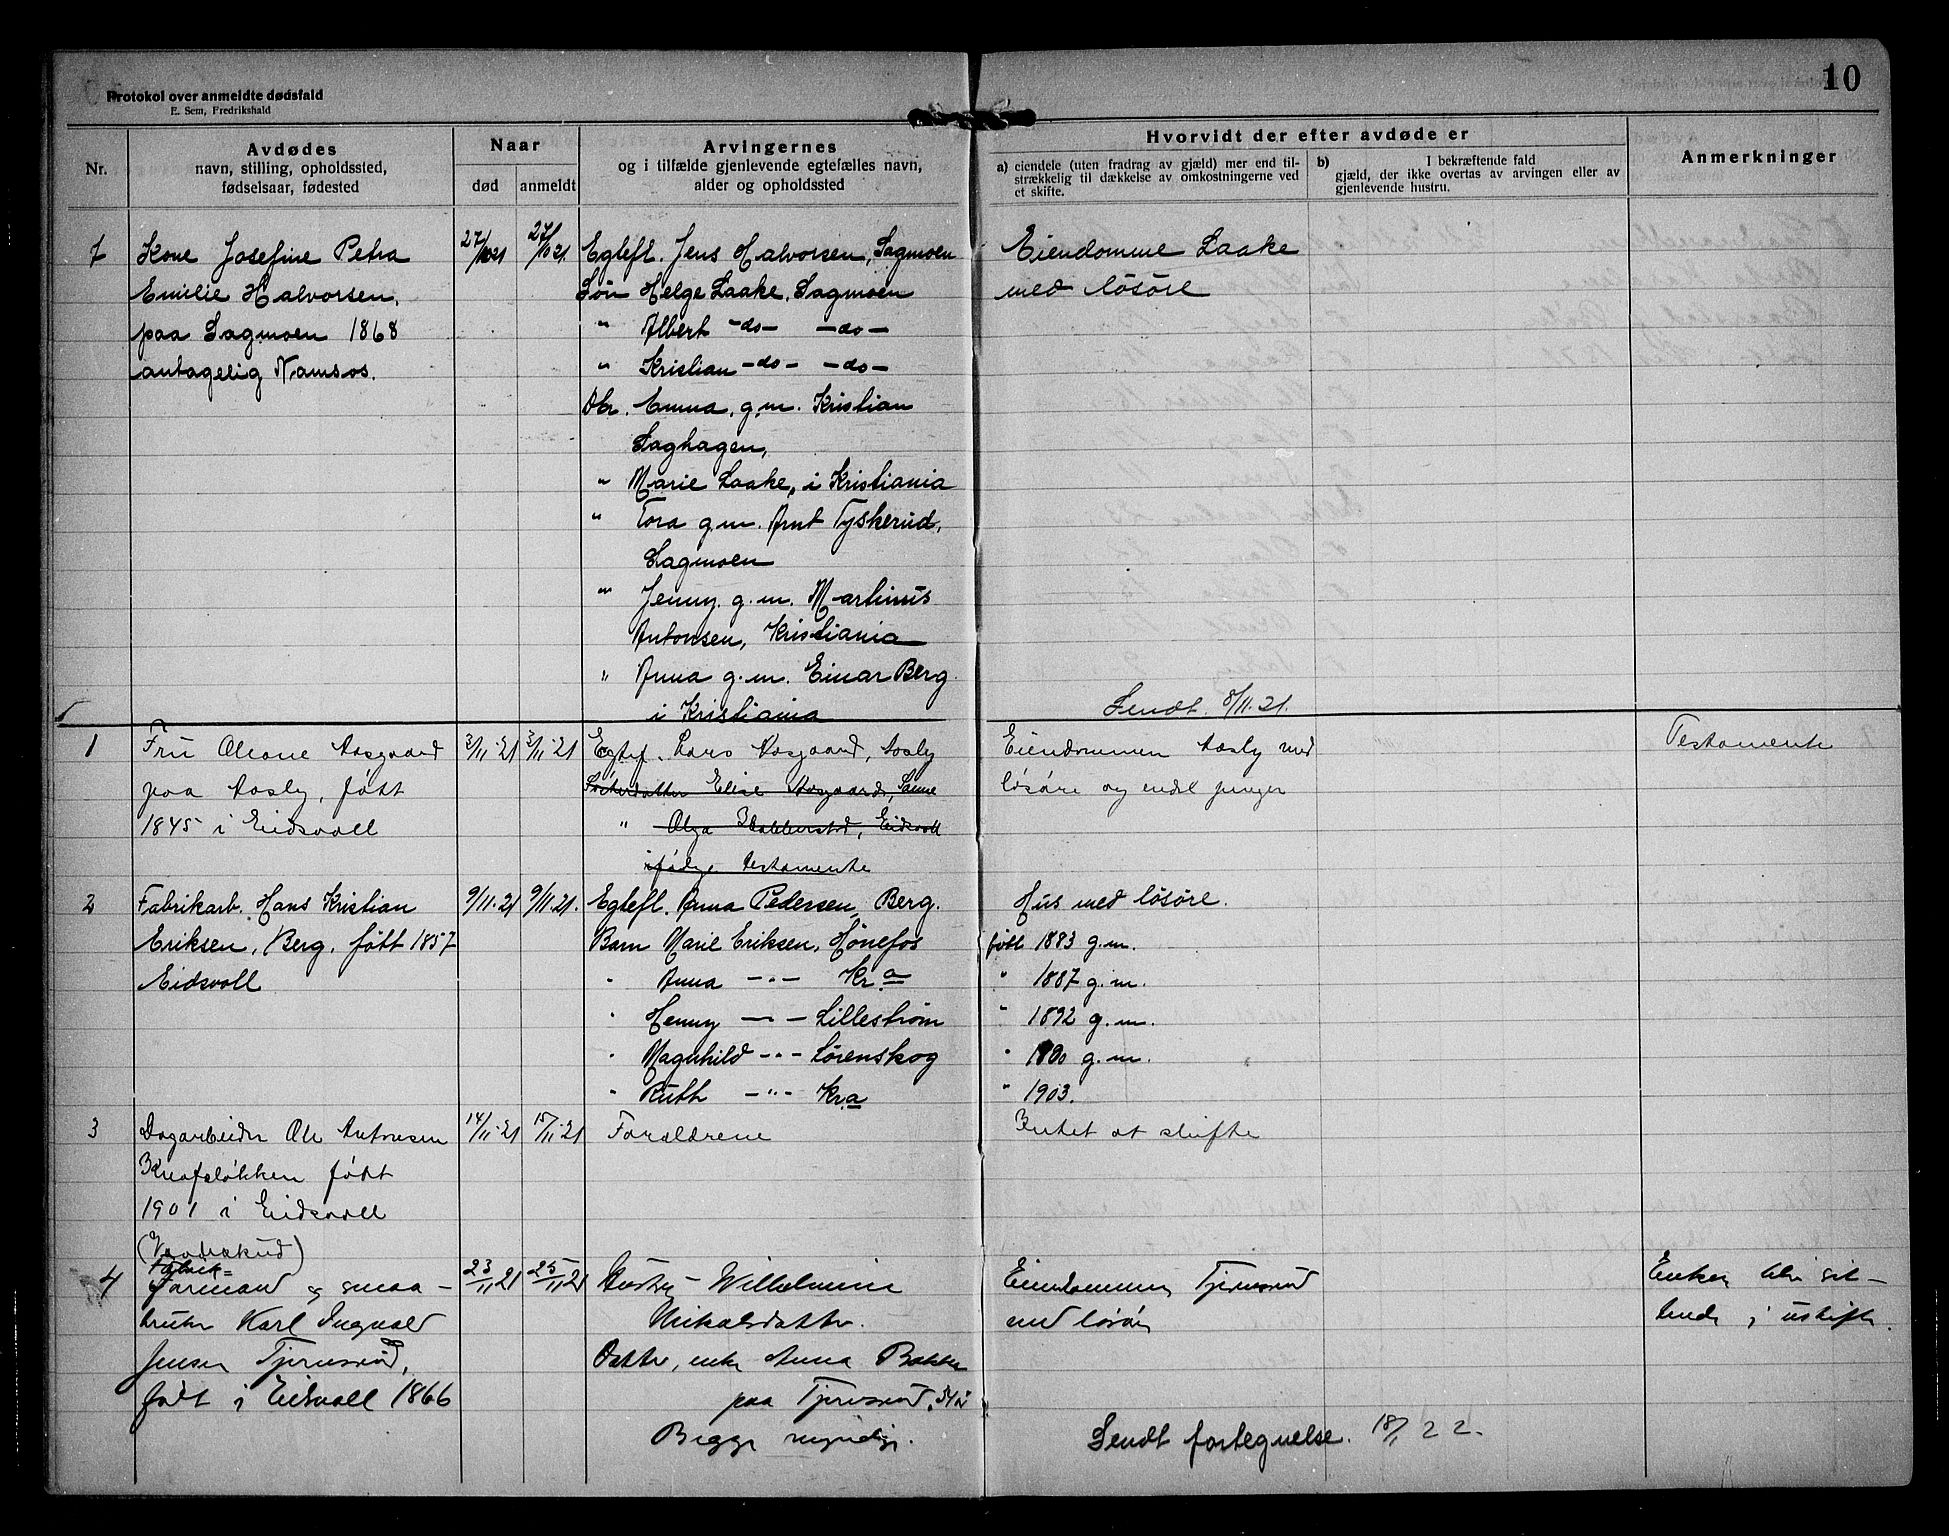 10
Protokol over anmeldte dødsfald
E. Sem, Fredrikshald
Nr.
Avdødes
navn, stilling, opholdssted,
fødselsaar, fødested
Naar
død
anmeldt
Arvingernes
og i tilfælde gjenlevende egtefælles navn,
alder og opholdssted
Hvorvidt der efter avdøde er
a) eiendele (uten fradrag av gjæld) mer end til-
strækkelig til dækkelse av omkostningerne ved
et skifte.
b) I bekræftende fald
gjæld, der ikke overtas av arvingen eller av
gjenlevende hustru.
Anmerkninger
7
Kone Josefine Petra
Emilie Halvorsen,
paa Sagmoen 1868
antagelig Namsos.
27/10 21
27/10 21.
Egtefl. Jens Halvorsen, Sagmoen
Søn Helge Laake, Sagmoen
" Albert -do- -do-
" Kristian -do- -do-
Dtr. Emma, g.m. Kristian
Saghagen,
" Marie Laake, i Kristiania
" Tora g.m. Arnt Tyskerud,
Sagmoen
" Jenny g.m. Martinus
Antonsen, Kristiania
" Anna g.m. Einar Berg
i Kristiania
Eiendomme Laake
med løsøre
Sendt 8/11.21.
1
Fru Oleane Aasgaard
paa Aasly, født
1845 i Eidsvoll
3/11-21
3/11-21
Egtef. Lars Aasgaard, Aasly
Søsterdatter Elise Aasgaard, Samme
" Olga Habberstad, Eidsvoll
ifølge testamente
Eiendommen Aasly med
løsøre og endel penger
Testamente
2
Fabrikarb. Hans Kristian
Eriksen, Berg, født 1857
Eidsvoll
9/11.21
9/11.21.
Egtefl. Anna Pedersen, Berg.
Barn Marie Eriksen, Hønefos
" Anna -"- Kr.a
" Henny -"- Lillestrøm
" Magnhild -"- Lørenskog
" Ruth -"- Kr.a
Hus med løsøre.
født 1883 g.m.
" 1887 g.m.
" 1892 g.m.
" g.m.
" 1903.
3
Dagarbeider Ole Antonsen
født
1901 i Eidsvoll
14/11-21
15/11-21
Forældrene
Intet at skifte
4
Fabrik=
formand og smaa-
bruker Karl Ingvald
Jensen Tjernsrud,
født i Eidsvoll 1866
23/11 21
25/11 21
Hustru Wilhelmine
Nikolsdatter.
Datter, enke Anna Bakken
paa Tjernsrud, 34 år
Begge myndige.
Eiendommen Tjernsrud
med løsøre
Sendt fortegnelse. 18/1 22.
Enken blir sit-
tende i uskifte.